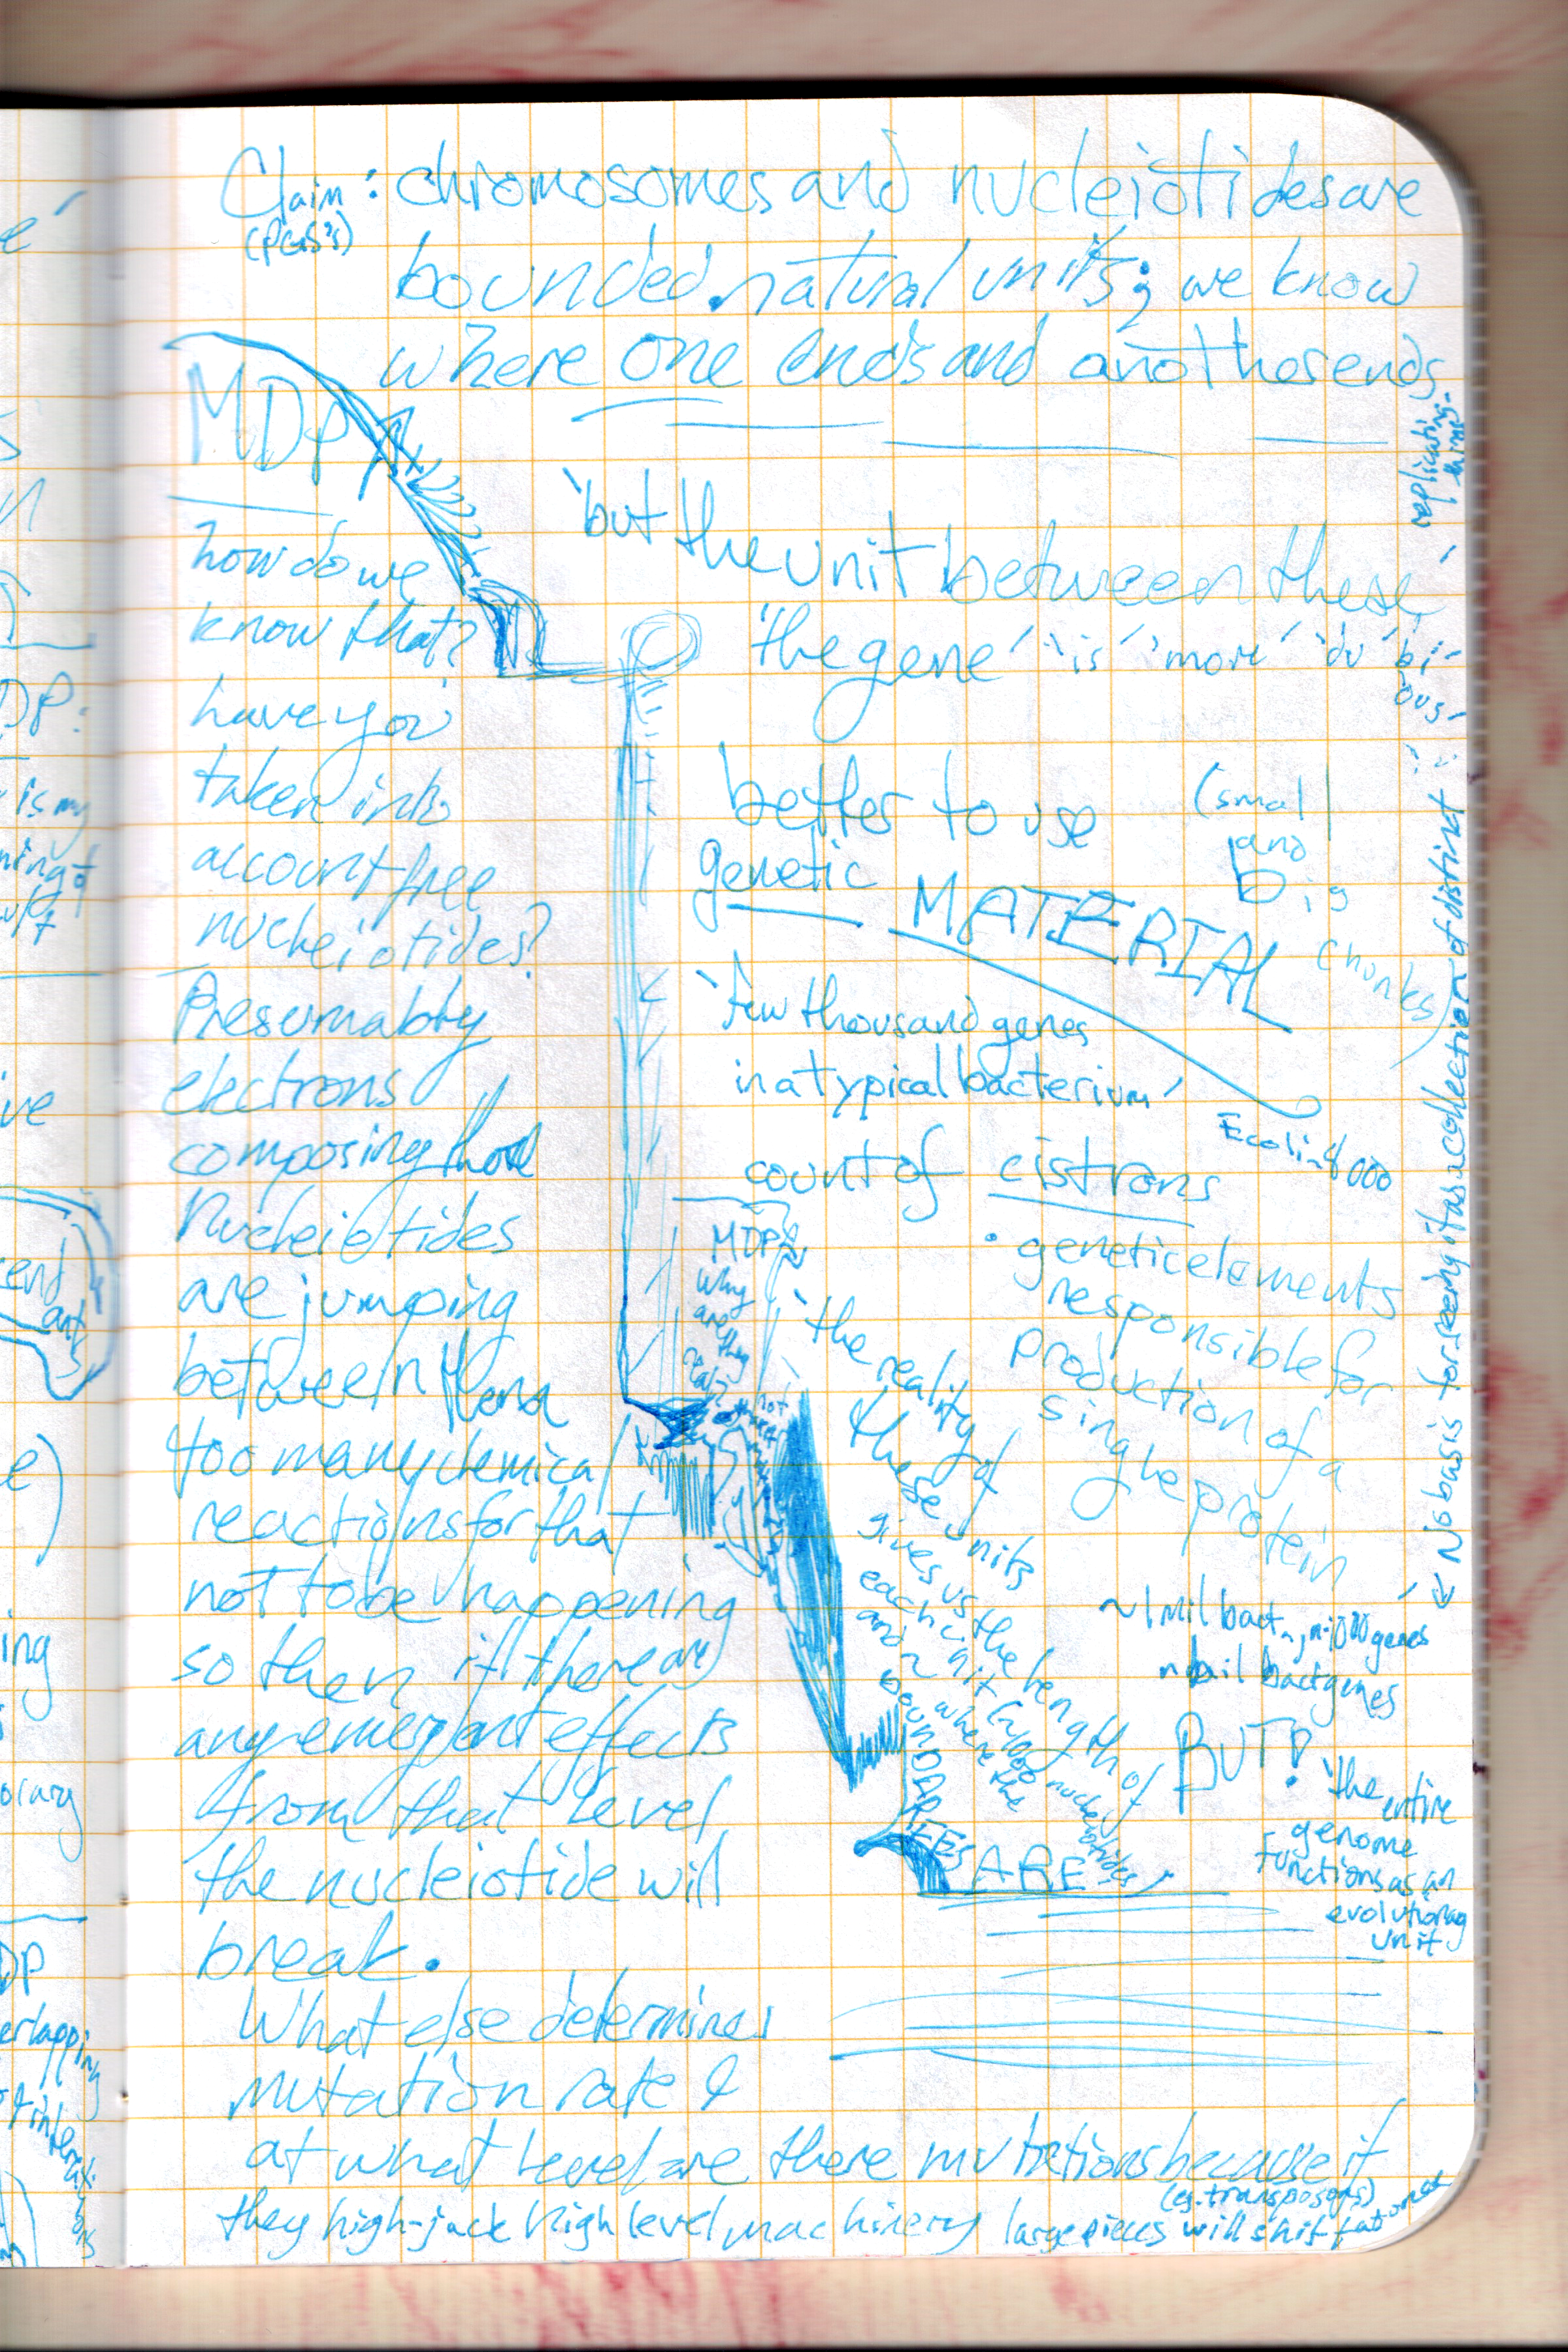 Claim: chromosomes and nucleiotides are
(PGS's)
bounded natural units; we know
where one ends and another ends
MDP
how do we
know that?
have you
taken into
account free
nucleiotides?
Presumably
electrons
composing those
Nucleiotides
are jumping
between them
too many chemical
reactions for that
not to be happening
so then if there are
any emergent effects
from that level
the nucleiotide will
break.
What else determines
mutation rate &
at what level are there mutations because if
they high-jack high level machinery large pieces will shift at once
(eg. transposons)
'but the unit between these'
'the gene' 'is' 'more' 'du bi-
ous'
better to use
genetic MATERIAL
(small
and
big
chunks)
'few thousand genes
in a typical bacterium'
Ecoli~4000
count of cistrons
• genetic elements
responsible for
production of a
single protein
MDP
why
are they
'the reality of
these units
gives us the length of
each unit (~1000 nucleotides)
and ~ where the
BOUNDARIES ARE'
~1 mil bact
genes
bact genes
BUT! 'the entire
genome
functions as an
evolutionary
unit
← No basis for seeing it as a collection of distinct
replicating